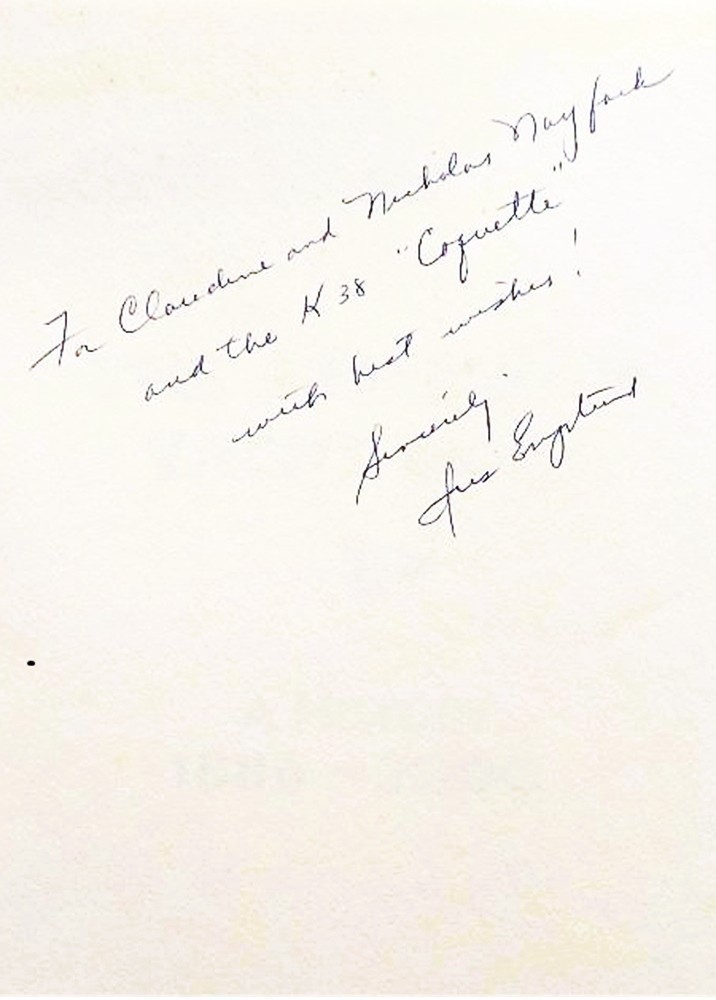 For Claudine and Nicholas Nayfack
and the K38 "Coquette"
with best wishes!
Sincerely,
Iris Engstrand